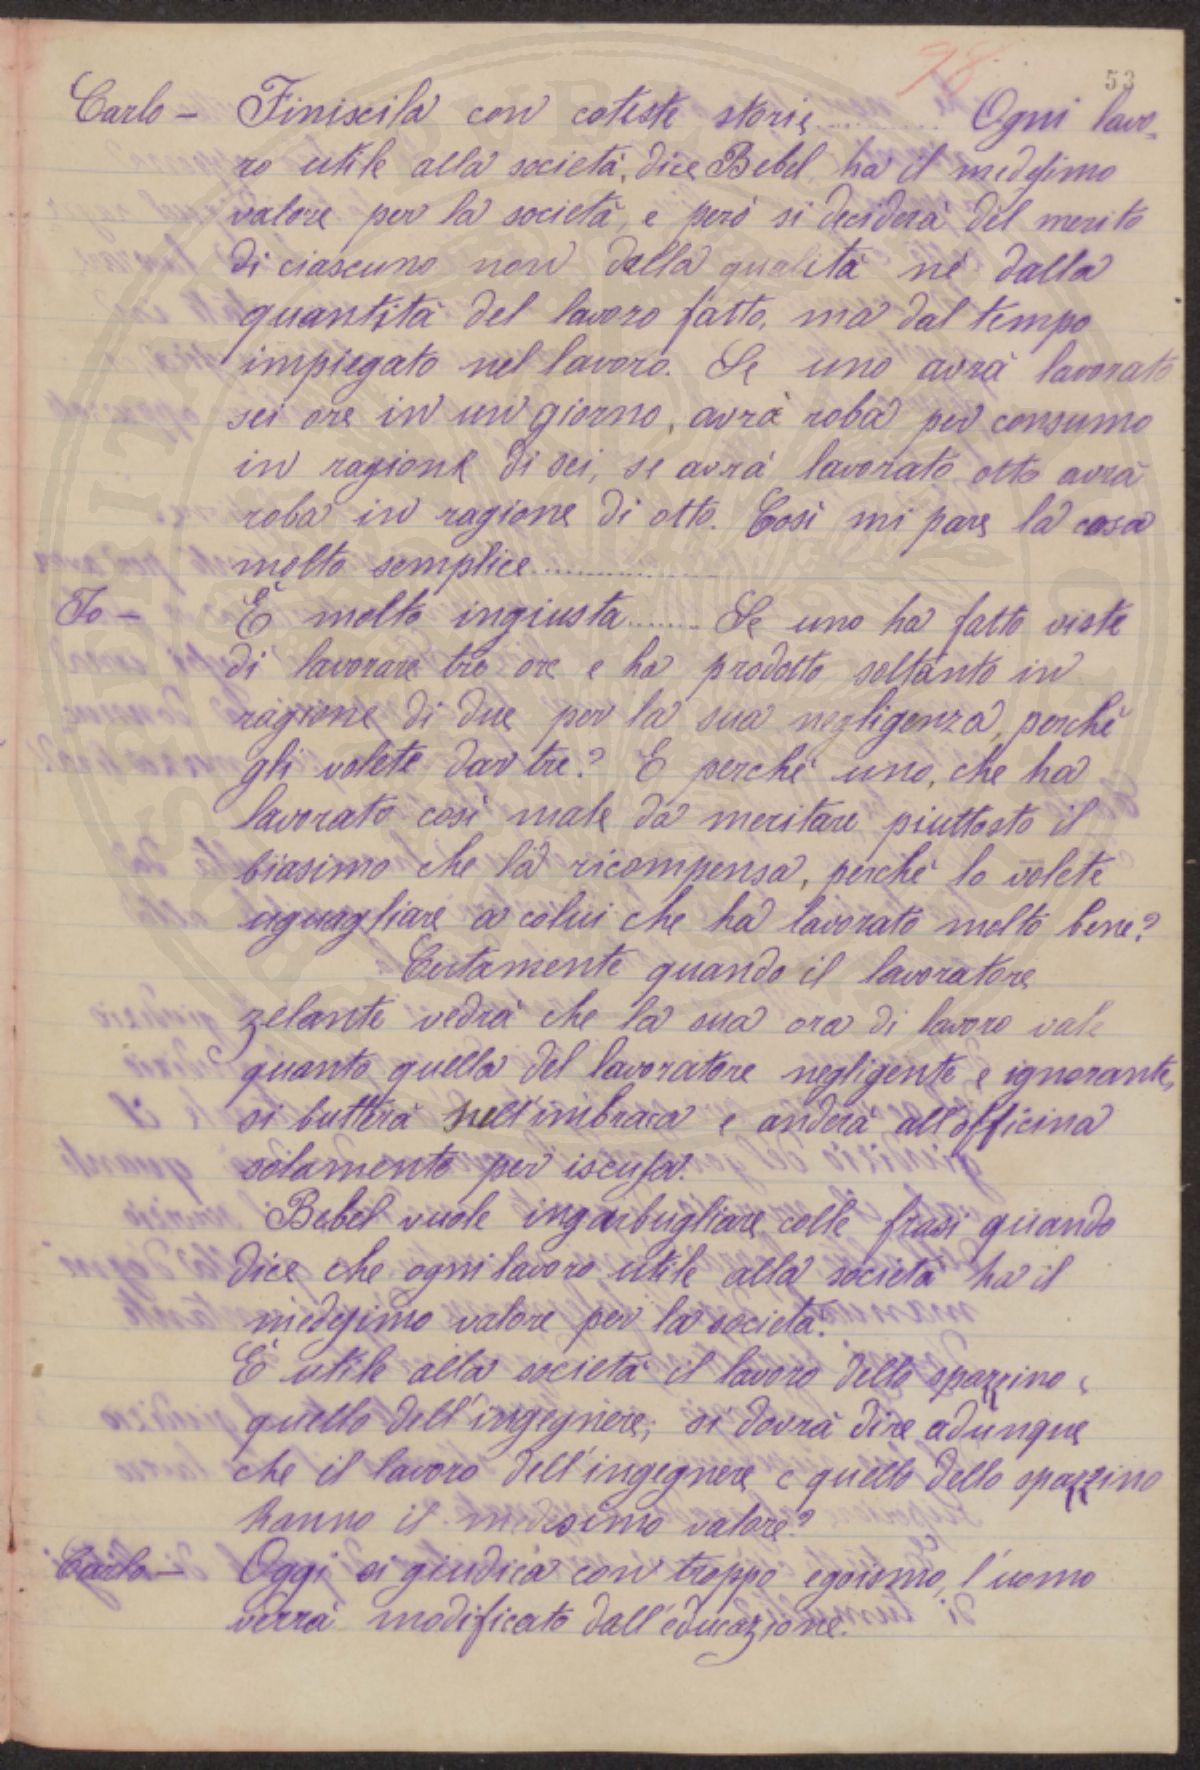 78.
53
Carlo - Finiscila con coteste storie ............ Ogni lavo-
ro utile alla società, dice Bebel, ha il medesimo
valore per la società, e però si deciderà del merito
di ciascuno non dalla qualità nè dalla
quantità del lavoro fatto, ma dal tempo
impiegato nel lavoro. Se uno avrà lavorato
sei ore in un giorno, avrà roba per consumo
in ragione di sei, se avrà lavorato otto avrà
roba in ragione di otto. Così mi pare la cosa
molto semplice...............
Io - È molto ingiusta....... Se uno ha fatto viste
di lavorare tre ore e ha prodotto soltanto in
ragione di due per la sua negligenza, perchè
gli volete dar tre? E perchè uno, che ha
lavorato così male da meritare piuttosto il
biasimo che la ricompensa, perchè lo volete
uguagliare a colui che ha lavorato molto bene?
Certamente quando il lavoratore
zelante vedrà che la sua ora di lavoro vale
quanto quella del lavoratore negligente e ignorante,
si butterà nell'imbraca e anderà all'officina
solamente per iscusa.
Bebel vuole ingarbugliare colle frasi quando
dice che ogni lavoro utile alla società ha il
medesimo valore per la società.
È utile alla società il lavoro dello spazzino e
quello dell'ingegnere; si dovrà dire adunque
che il lavoro dell'ingegnere e quello dello spazzino
hanno il medesimo valore?
Carlo - Oggi si giudica con troppo egoismo, l'uomo
verrà modificato dall'educazione.